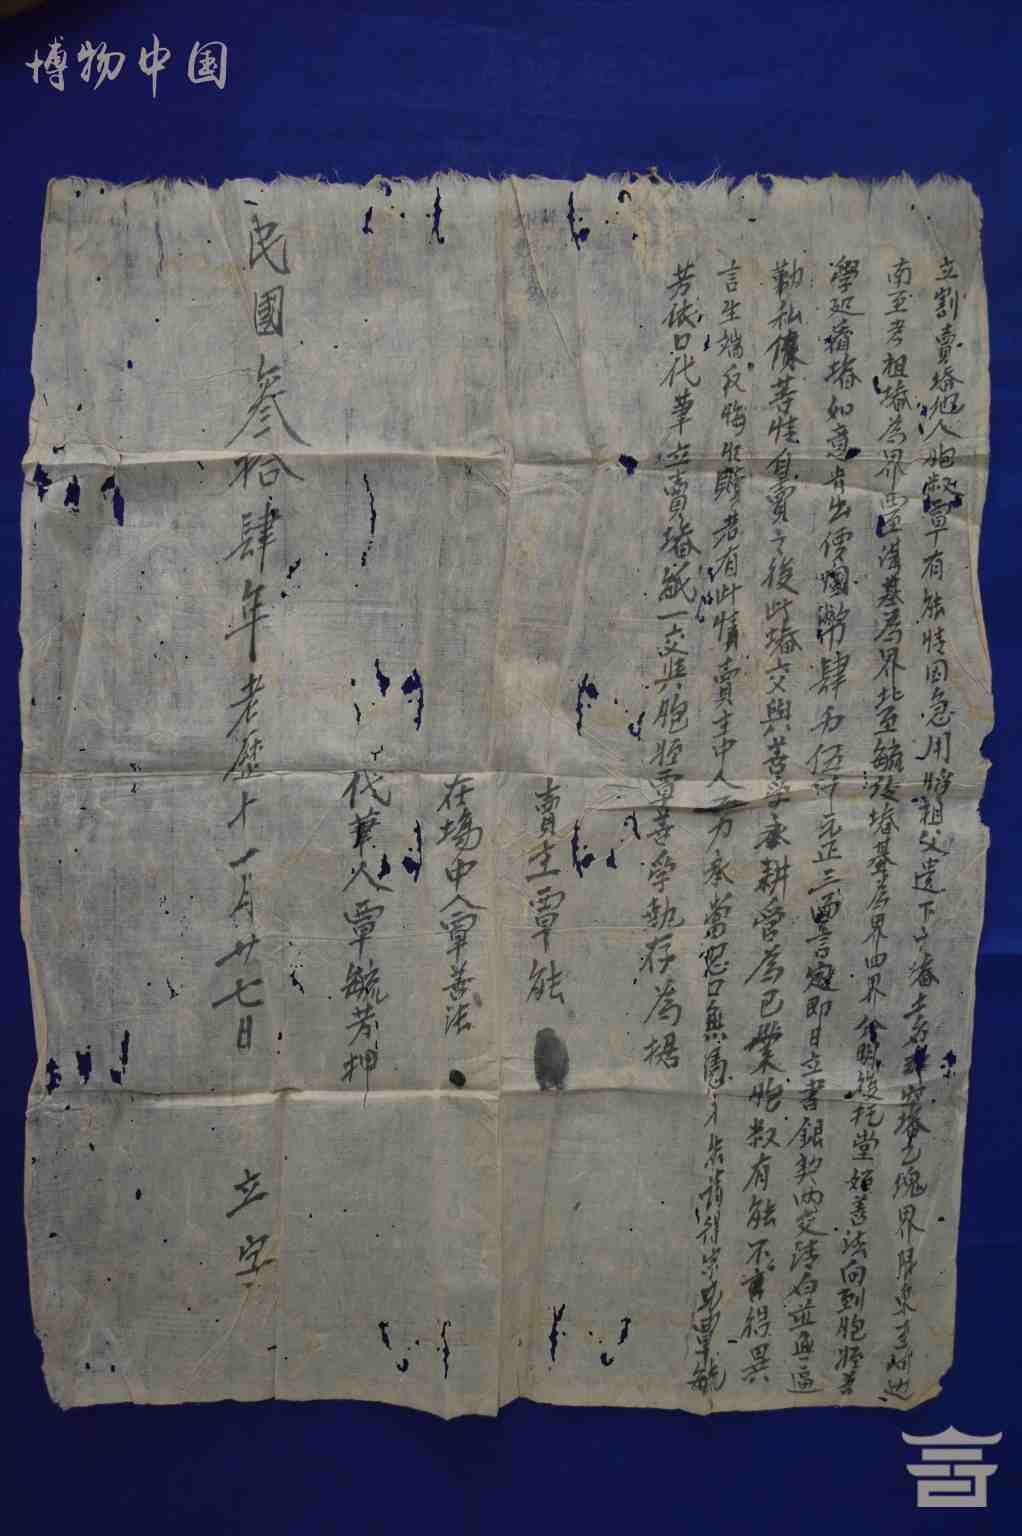 博物中国
立割賣墦地人胞叔覃有能情因急用將祖父遺下之墦土名 墦乙塊界限東至 边
南至考祖墦為界西至溝基為界北至毓 墦基為界四界分明後托堂姪善法向到胞姪善
學処 墦如意肯出價國幣肆万伍仟元正三面言定即日立書銀契兩交清白並無逼
勒私債等情自賣之後此墦交與善学永耕管為己業胞叔有能不言得異
言生端反悔生贖若有此情賣主中人一力承當恐口無憑 請得宗兄覃毓
芳依口代筆立賣墦紙一交與胞姪覃善學執存為據
賣主覃能
在場中人覃善法
代筆人覃毓芳押
民國叁拾肆年老歷十一月廿七日 立字